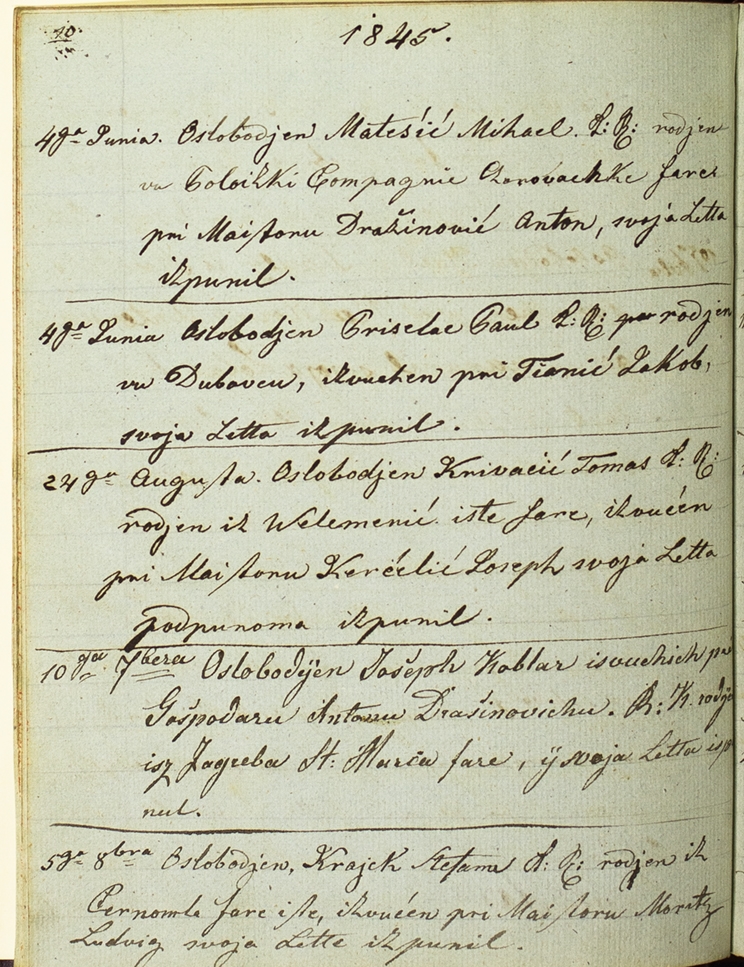 10
1845.
4ga Junia. Oslobodjen Matešić Mihael. R: K: rodjen
vu Compagnie fare
pri Maistoru Dražinović Anton, svoja Letta
izpunil.
4ga Junia Oslobodjen Priselac Paul R: K: rodjen
vu Dubovcu, izvuchen pri Jakob,
svoja Letta izpunil.
24ga Augusta. Oslobodjen Krivačić Tomas R: K:
rodjen iz Welemenić iste fare, izvučen
pri Maistoru Kerčelić Joseph svoja Letta
podpunoma izpunil.
10ga 7bera Oslobodÿen Joseph Koblar isvuchich pri
Gospodaru Antonu Drasinovichu. R: K. rodÿe
isz Zagreba St: Marća fare, ÿ svoja Letta ispu
nul.
5ga 8bra Oslobodjen, Krajek Stefan R: K: rodjen iz
Černomla fare iste, izvučen pri Maistoru Moritz
Ludvig svoja Lette izpunil.